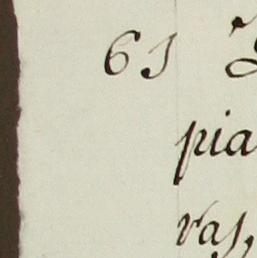 61
pia
vas,